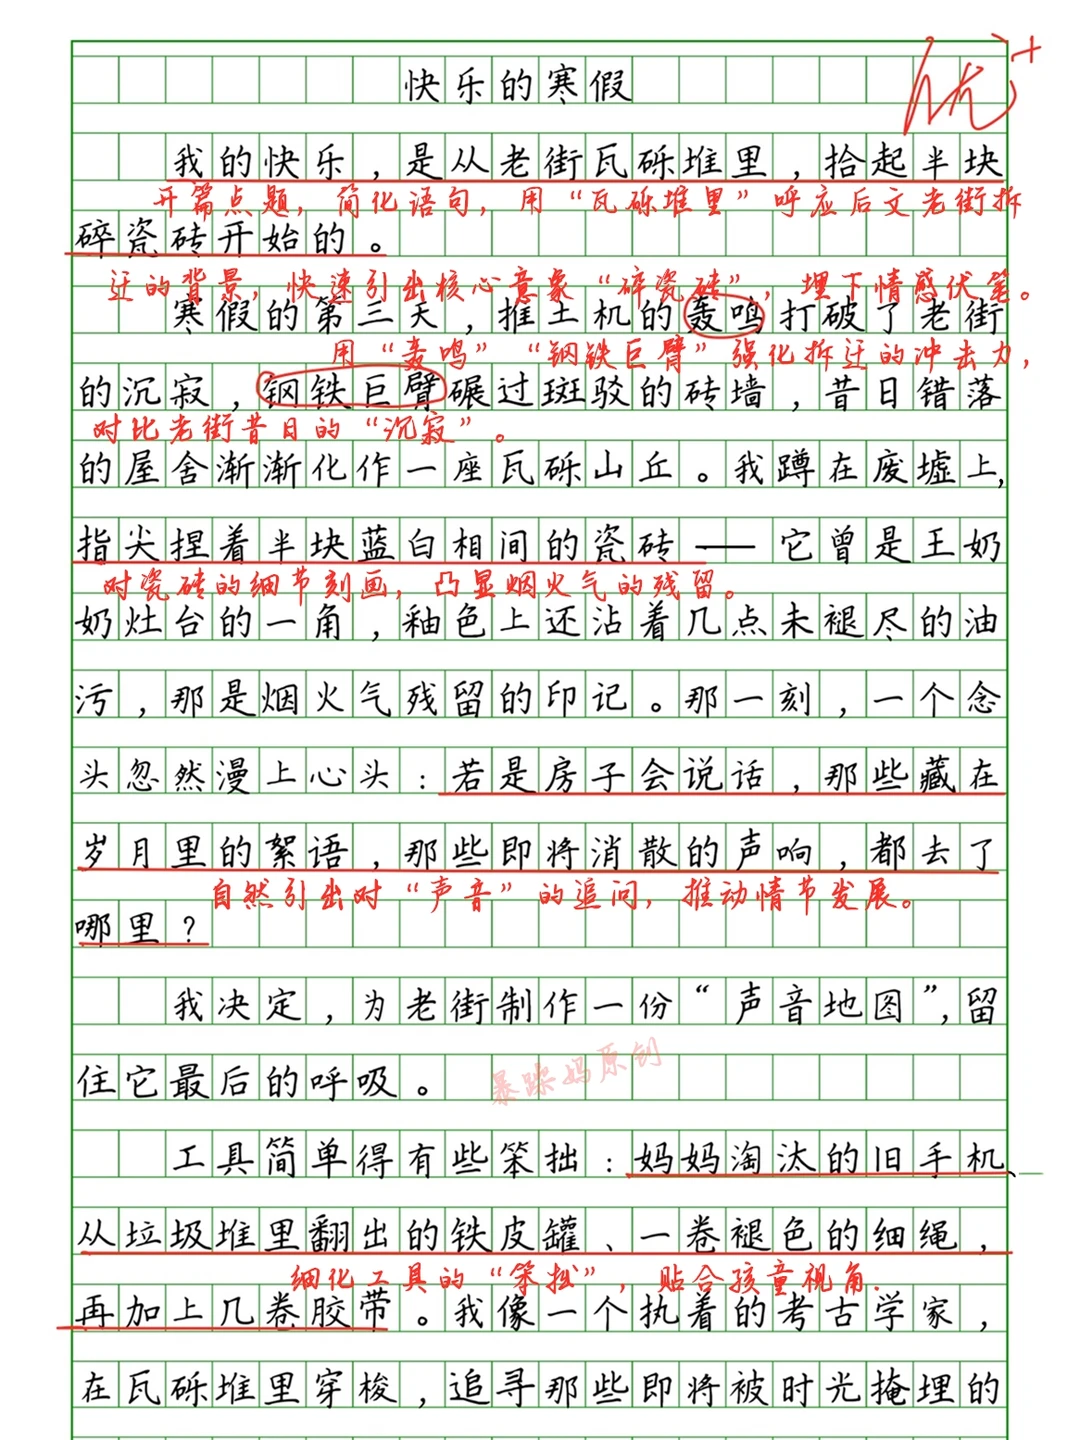 快乐的寒假
优+
我的快乐，是从老街瓦砾堆里，拾起半块
开篇点题，简化语句，用“瓦砾堆里”呼应后文老街拆
碎瓷砖开始的。
迁的背景，快速引出核心意象“碎瓷砖”，埋下情感伏笔。
寒假的第三天，推土机的轰鸣打破了老街
用“轰鸣”“钢铁巨臂”强化拆迁的冲击力，
的沉寂，钢铁巨臂碾过斑驳的砖墙，昔日错落
对比老街昔日的“沉寂”。
的屋舍渐渐化作一座瓦砾山丘。我蹲在废墟上，
指尖捏着半块蓝白相间的瓷砖——它曾是王奶
对瓷砖的细节刻画，凸显烟火气的残留。
奶灶台的一角，釉色上还沾着几点未褪尽的油
污，那是烟火气残留的印记。那一刻，一个念
头忽然漫上心头：若是房子会说话，那些藏在
岁月里的絮语，那些即将消散的声响，都去了
自然引出对“声音”的追问，推动情节发展。
哪里？
我决定，为老街制作一份“声音地图”，留
住它最后的呼吸。
暴躁妈原创
工具简单得有些笨拙：妈妈淘汰的旧手机、
从垃圾堆里翻出的铁皮罐、一卷褪色的细绳，
细化工具的“笨拙”，贴合孩童视角.
再加上几卷胶带。我像一个执着的考古学家，
在瓦砾堆里穿梭，追寻那些即将被时光掩埋的